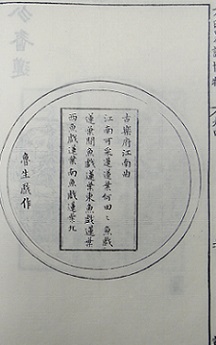 古樂府江南曲
江南可采蓮蓮葉何田〻魚戲
蓮葉間魚戲蓮葉東魚戲蓮葉
西魚戲蓮葉南魚戲蓮葉北
魯生戲作